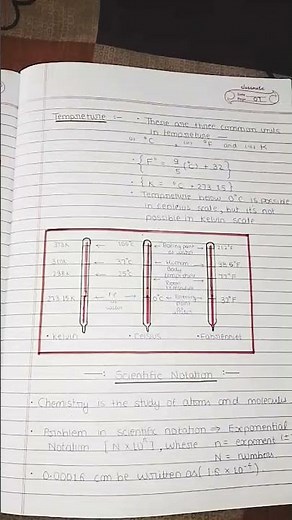 classmate
Date
Page 07
Tempreture :- • There are three common units
in tempreture —
(i) °C , (ii) °F and (iii) K
• { F° = 9/5 (°C) + 32 }
• { K = °C + 273.15 }
• Tempreture below 0°C is possible
in celsius scale, but it's not
possible in kelvin scale
373K 100°C Boiling point of water 212°F
310K 37°C Human Body 98.6°F
298K 25°C Room 77°F
273.15K of water 0°C 32°F
• Kelvin • Celsius • Fahrenheit
—: Scientific Notation :—
• Chemistry is the study of atoms and molecu
• Problem in scientific notation ⇒ Exponential
Notation [N × 10ⁿ], where n = exponent
N = numbers
• 0.00016 can be written as (1.6 × 10⁻⁴)